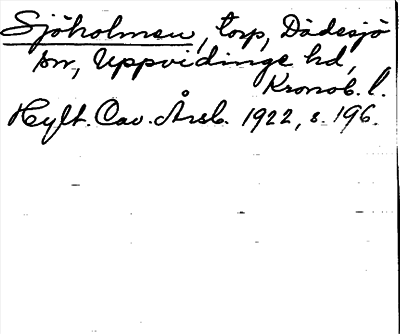 Sjöholmen, torp, Dädesjö
sn, Uppvidinge hd,
Kronob. l.
Hylt. Cav. Årsb. 1922, s. 196.